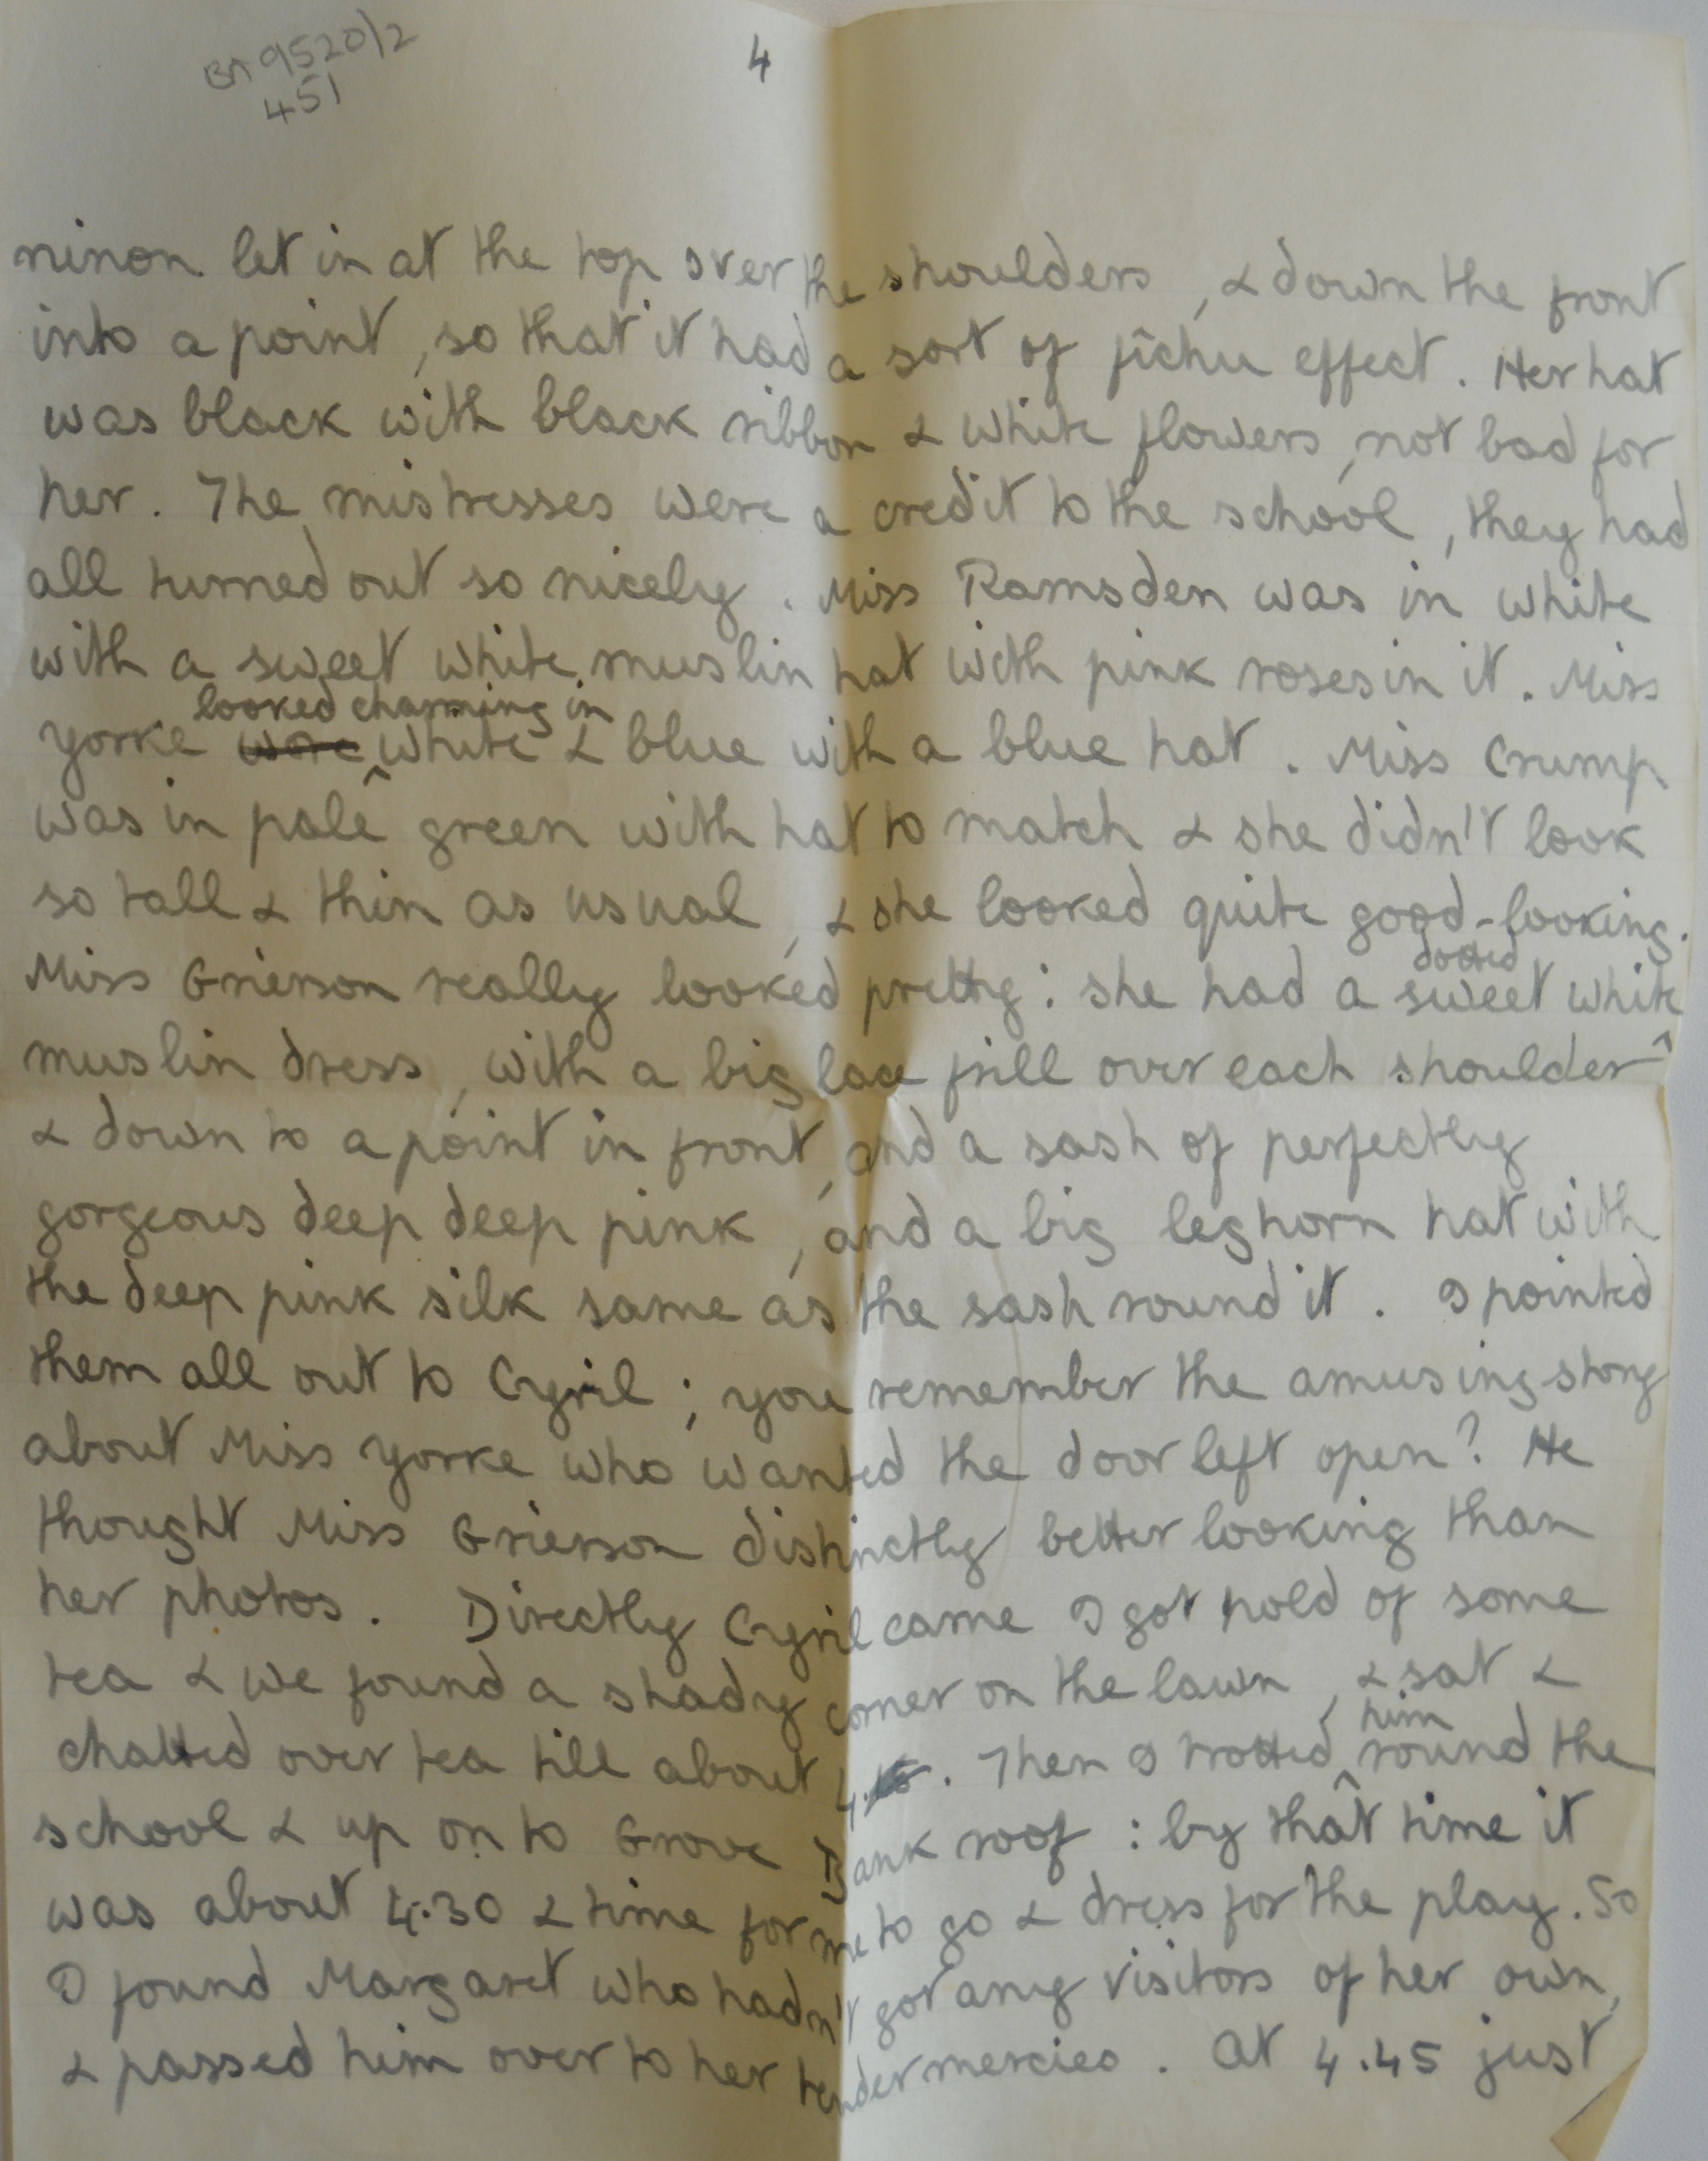 BA 9520/2
451
4
ninon let in at the top over the shoulders, & down the front
into a point, so that it had a sort of fîchu effect. Her hat
was black with black ribbon & white flowers, not bad for
her. The mistresses were a credit to the school, they had
all turned out so nicely. Miss Ramsden was in white
with a sweet white muslin hat with pink roses in it. Miss
looked charming in
Yorke wore white & blue with a blue hat. Miss Crump
was in pale green with hat to match & she didn't look
so tall & thin as usual, & she looked quite good-looking.
dotted
Miss Grierson really looked pretty: she had a sweet white
muslin dress, with a big lace frill over each shoulder
& down to a point in front, and a sash of perfectly
gorgeous deep deep pink, and a big leghorn hat with
the deep pink silk same as the sash round it. I pointed
them all out to Cyril; you remember the amusing story
about Miss Yorke who wanted the door left open? He
thought Miss Grierson distinctly better looking than
her photos. Directly Cyril came I got hold of some
tea & we found a shady corner on the lawn, & sat &
him
chatted over tea till about 4.15. Then I trotted round the
school & up on to Grove Bank roof: by that time it
was about 4.30 & time for me to go & dress for the play. So
I found Margaret who hadn't got any visitors of her own,
& passed him over to her tender mercies. At 4.45 just